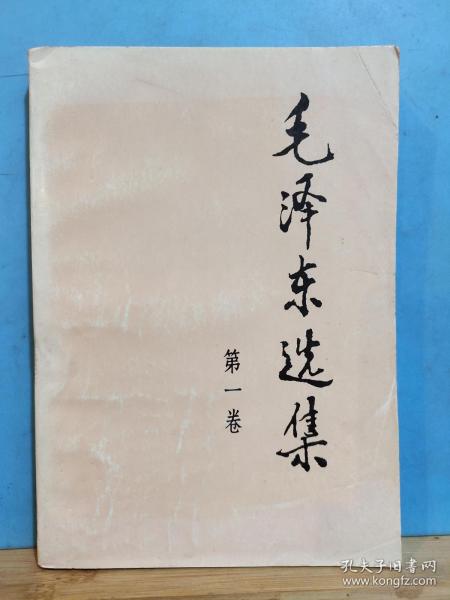 毛泽东选集
第一卷
孔夫子旧书网
www.kongfz.com